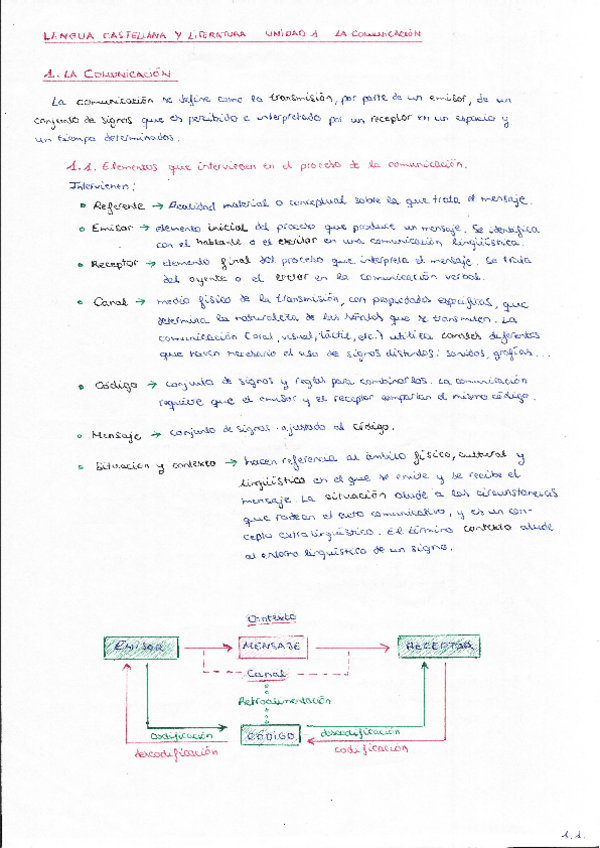 LENGUA CASTELLANA Y LITERATURA UNIDAD 1 LA COMUNICACIÓN
1. LA COMUNICACIÓN
La comunicación se define como la transmisión, por parte de un emisor, de un
conjunto de signos que es percibido e interpretado por un receptor en un espacio y
un tiempo determinados.
1.1. Elementos que intervienen en el proceso de la comunicación.
Intervienen:
• Referente → Realidad material o conceptual sobre la que trata el mensaje.
• Emisor → elemento inicial del proceso que produce un mensaje. Se identifica
con el hablante o el escritor en una comunicación lingüística.
• Receptor → elemento final del proceso que interpreta el mensaje. Se trata
del oyente o el lector en la comunicación verbal.
• Canal → medio físico de la transmisión, con propiedades específicas, que
determina la naturaleza de las señales que se transmiten. La
comunicación (oral, visual, táctil, etc.) utiliza canales diferentes
que hacen necesario el uso de signos distintos: sonidos, grafías...
• Código → conjunto de signos y reglas para combinarlos. La comunicación
requiere que el emisor y el receptor compartan el mismo código.
• Mensaje → conjunto de signos ajustado al código.
• Situación y contexto → hacen referencia al ámbito físico, cultural y
lingüístico en el que se emite y se recibe el
mensaje. La situación alude a las circunstancias
que rodean el acto comunicativo, y es un con-
cepto extralingüístico. El término contexto alude
al entorno lingüístico de un signo.
Contexto
EMISOR → MENSAJE → RECEPTOR
Canal
Retroalimentación
codificación CÓDIGO descodificación
descodificación codificación
1.1.